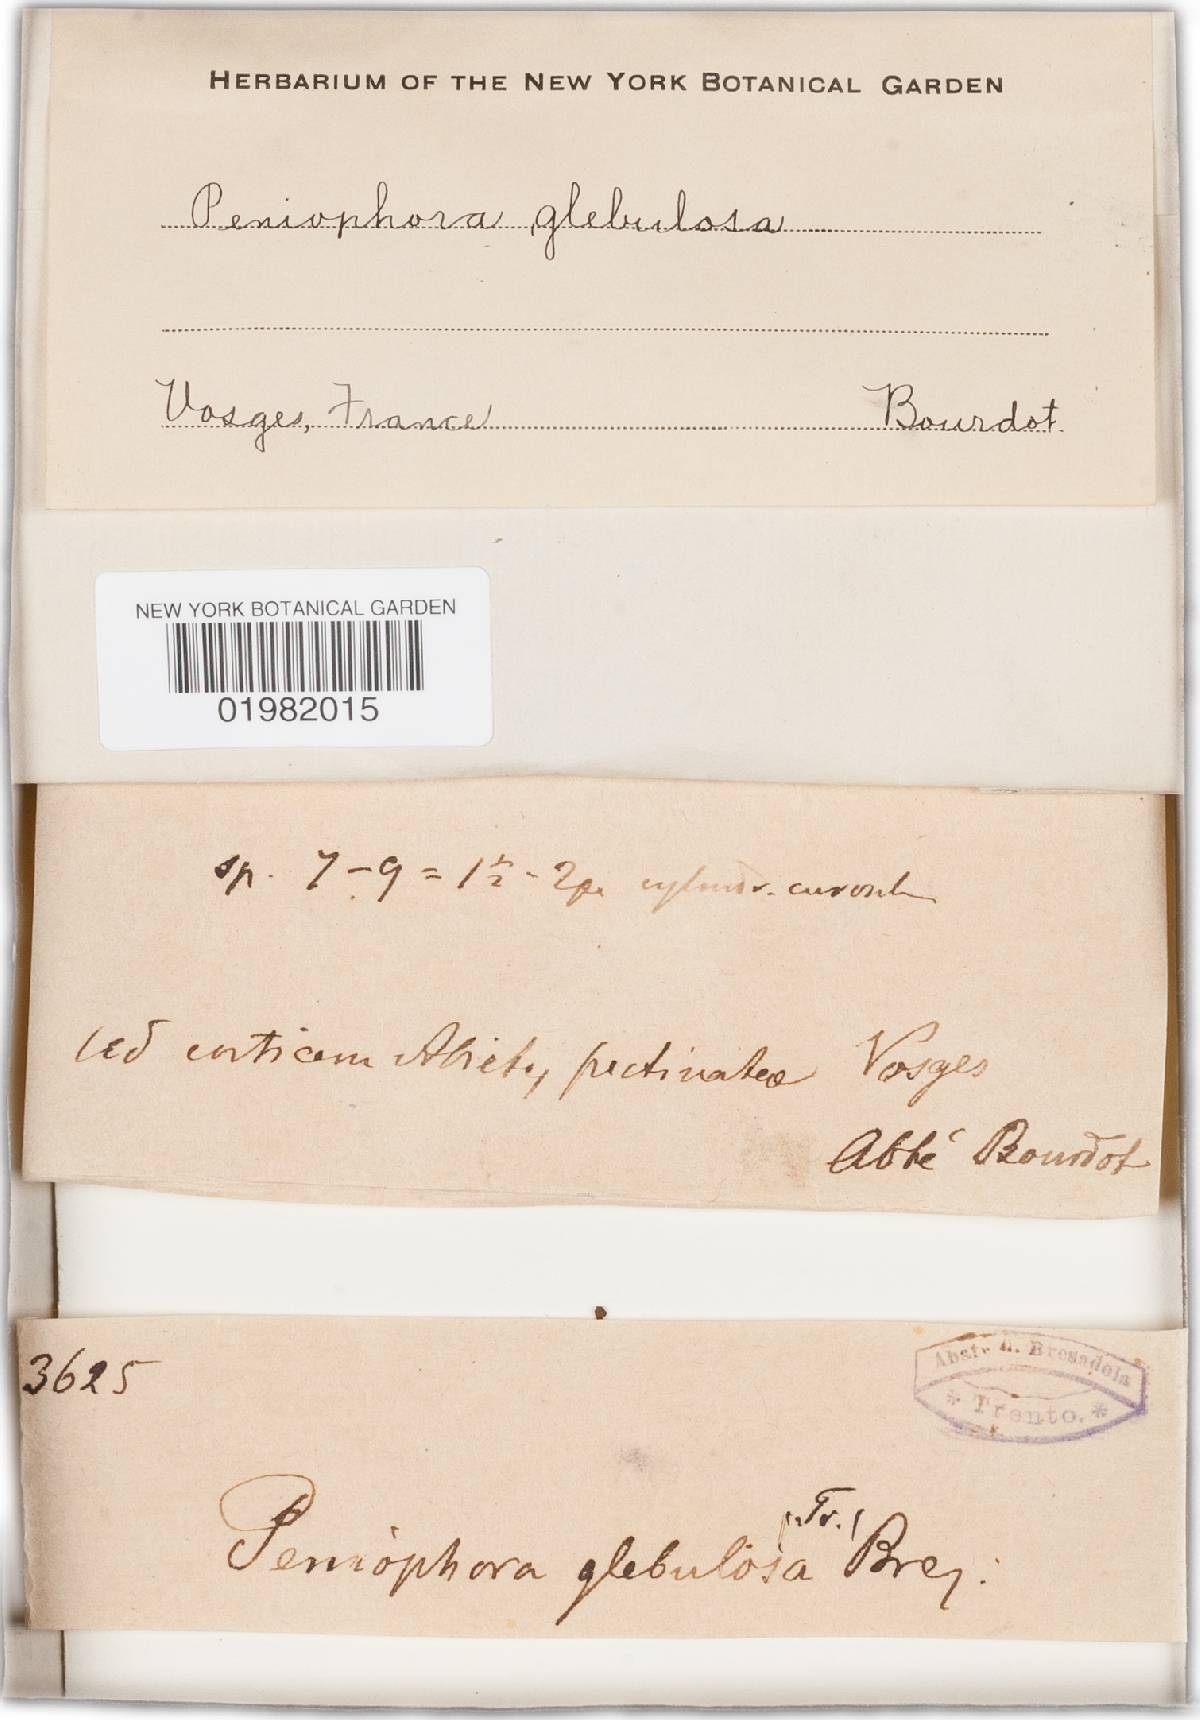 HERBARIUM OF THE NEW YORK BOTANICAL GARDEN
Peniophora glebulosa
Vosges, France Bourdot
NEW YORK BOTANICAL GARDEN
01982015
sp. 7-9 = 1½-2µ cylindr.
ad corticem Abiet. pectinatae Vosges
Abbé Bourdot
3625
Abate Bresadola
* Trento. *
Peniophora glebulosa (Fr.) Bres.